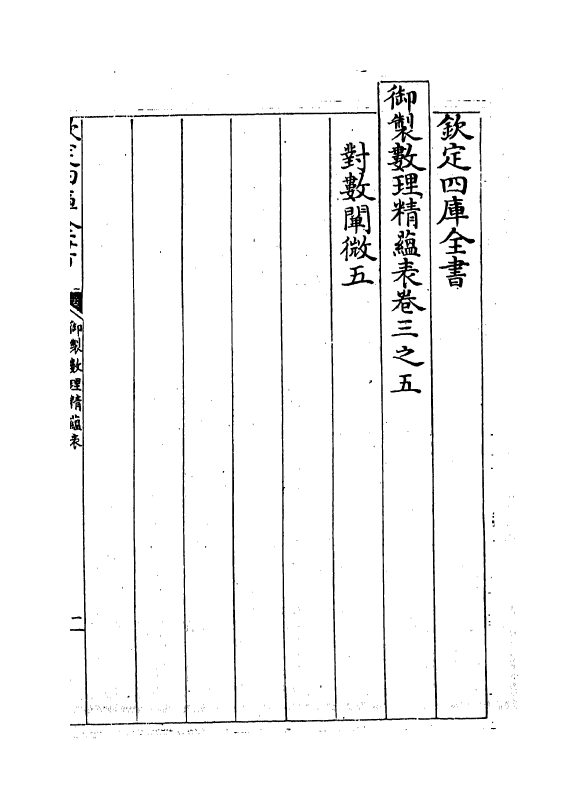 欽定四庫全書
御製數理精蘊表卷三之五
對數闡微五
欽定四庫全書
御製數理精蘊表
二